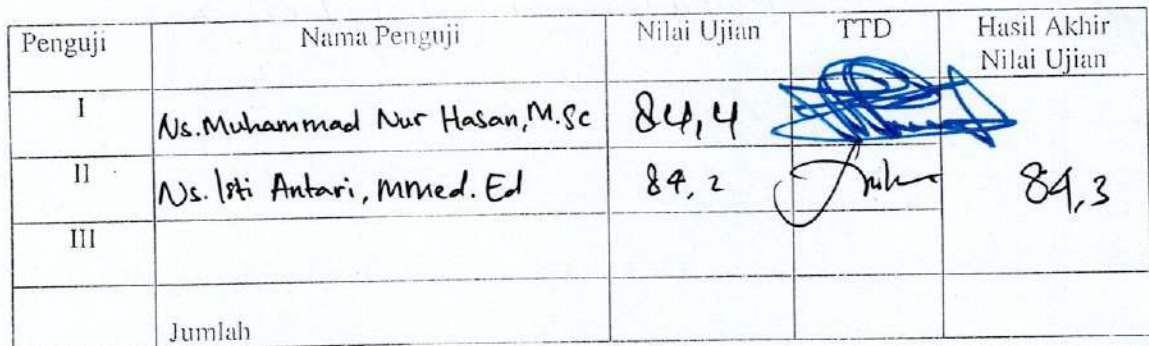 Penguji Nama Penguji Nilai Ujian TTD Hasil Akhir
Nilai Ujian
I Ns. Muhammad Nur Hasan, M.Sc 84,4
II Ns. Isti Antari, MMed. Ed 84,2 84,3
III
Jumlah